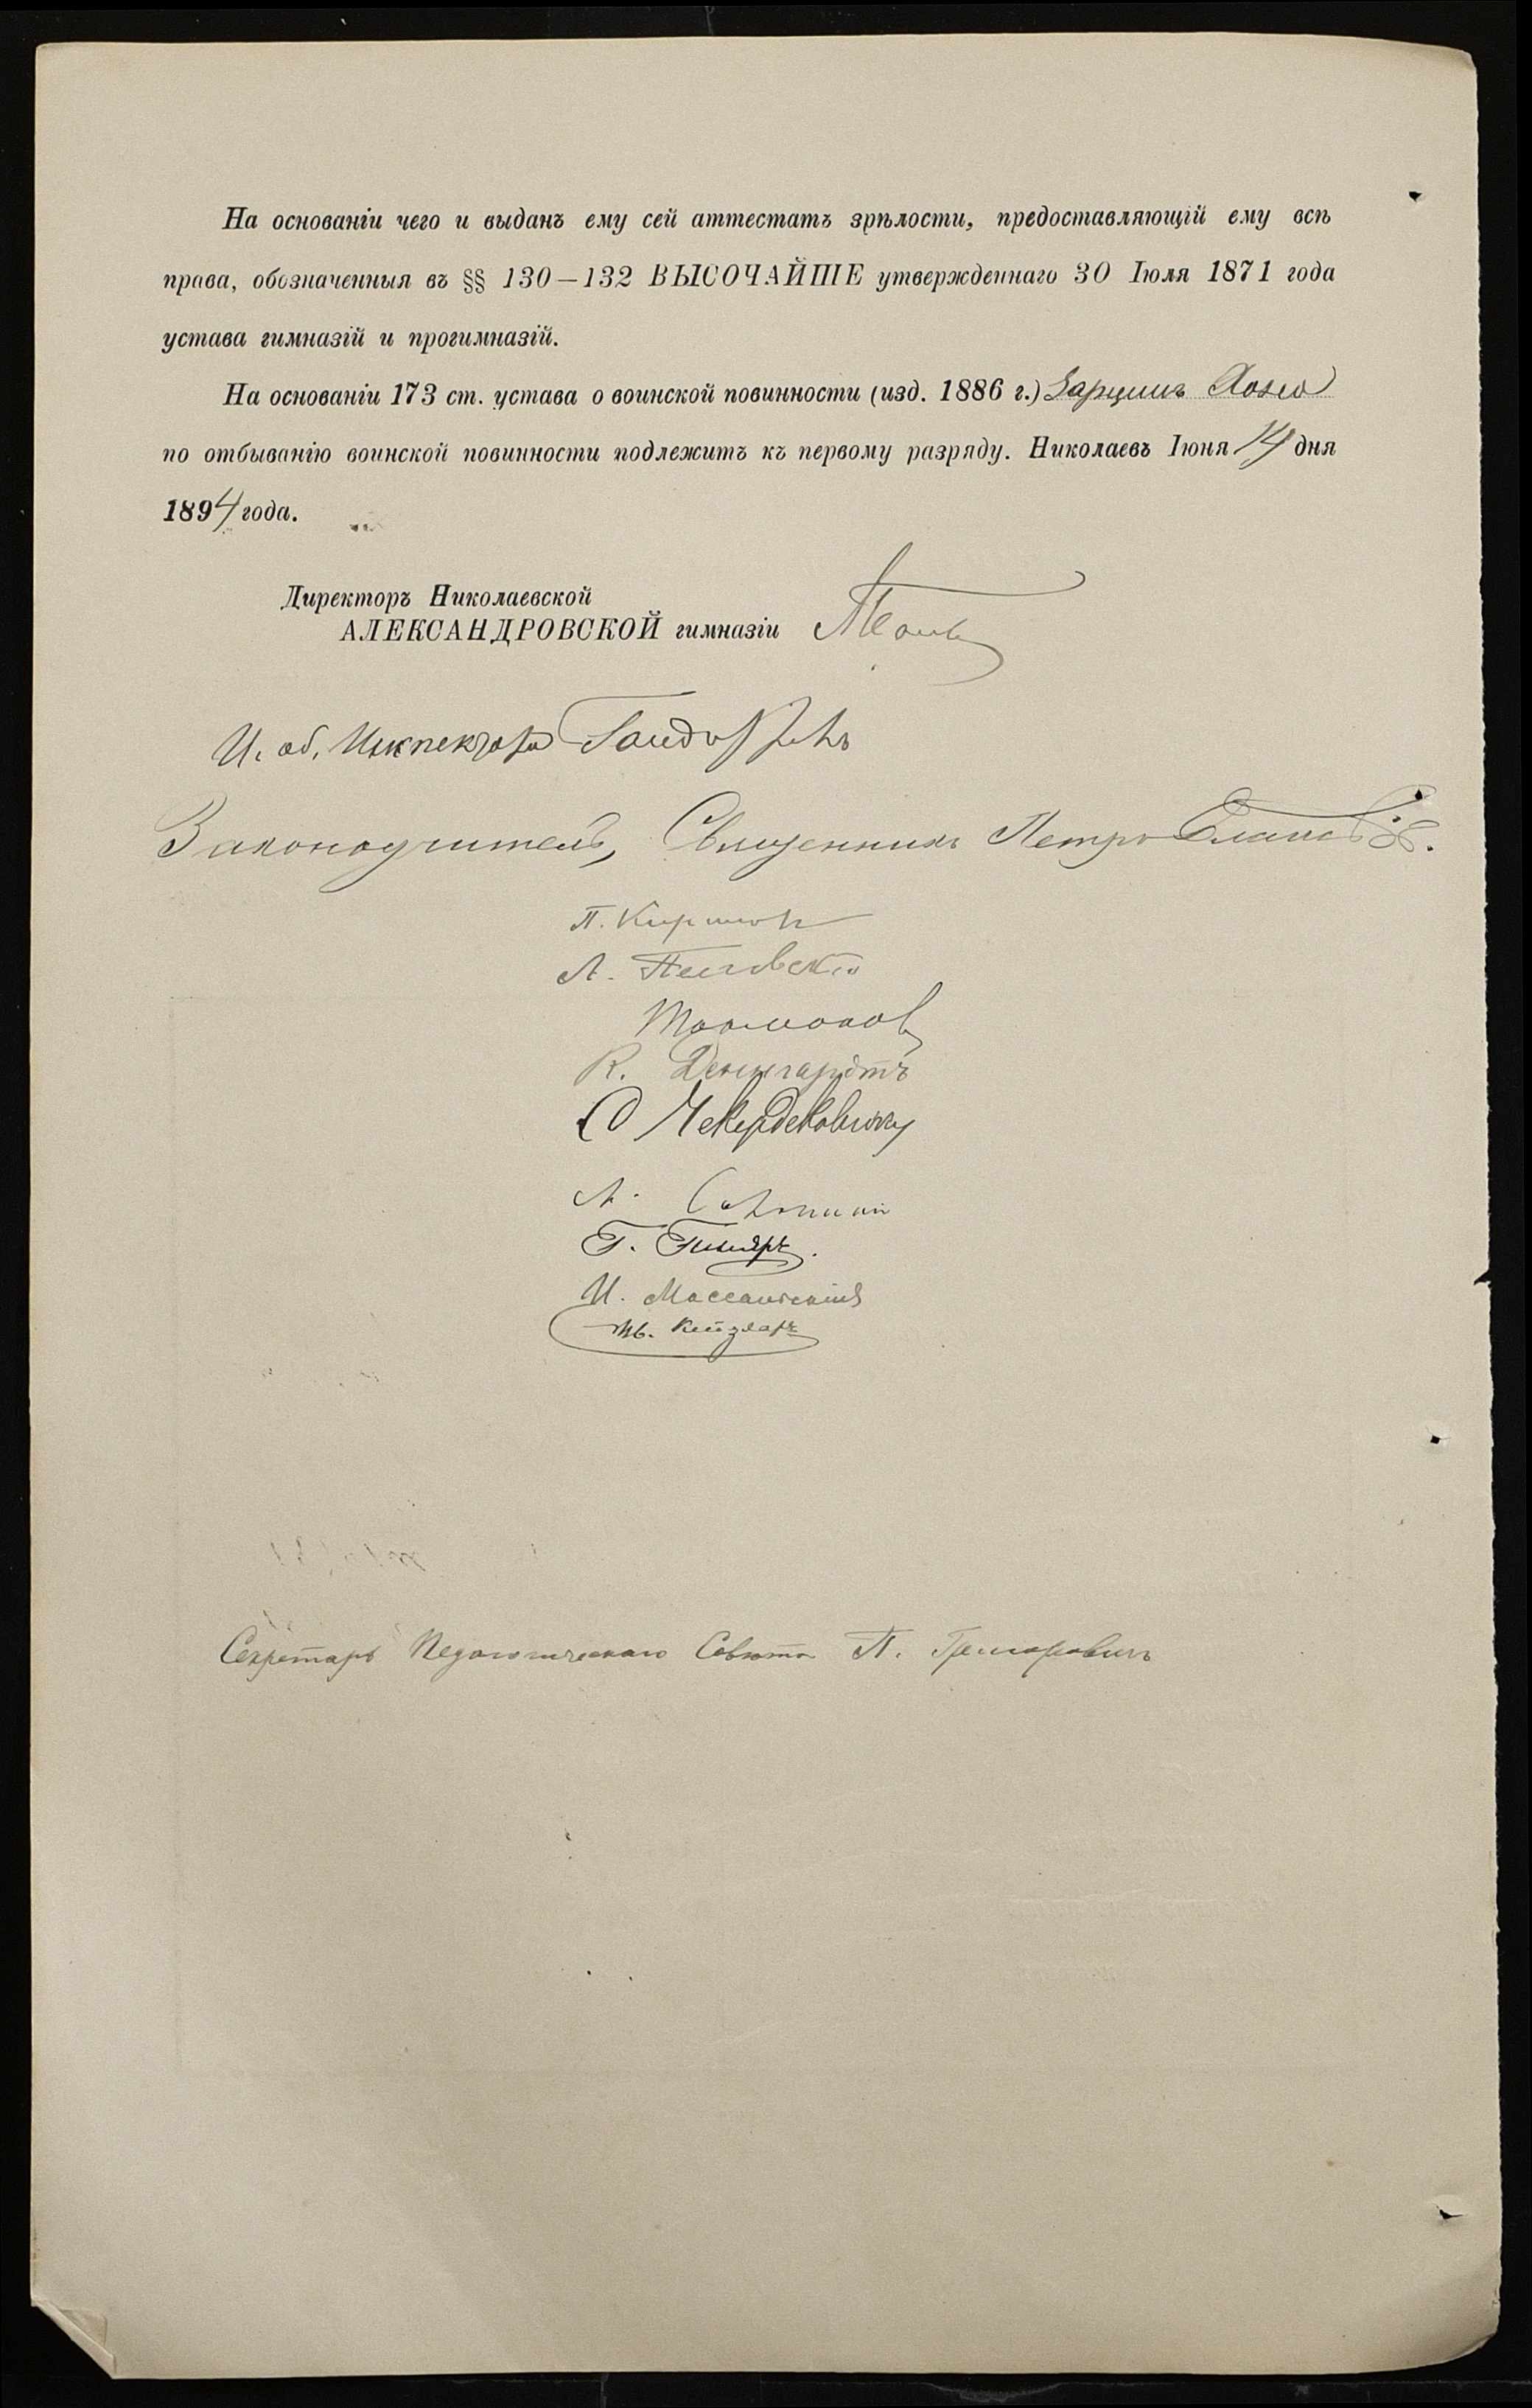 На основаніи чего и выданъ ему сей аттестатъ зрѣлости, предоставляющій ему всѣ
права, обозначенныя въ §§ 130—132 ВЫСОЧАЙШЕ утвержденнаго 30 Іюля 1871 года
устава гимназій и прогимназій.
На основаніи 173 ст. устава о воинской повинности (изд. 1886 г.)
по отбыванію воинской повинности подлежитъ къ первому разряду. Николаевъ Іюня 14 дня
1894 года.
Директоръ Николаевской
АЛЕКСАНДРОВСКОЙ гимназіи
И. об. Инспектора
Законоучитель, Священникъ Петръ
П.
А.
К. Денгардтъ
А.
Г.
И.
Секретарь Педагогическаго Совѣта П. Григоровичъ